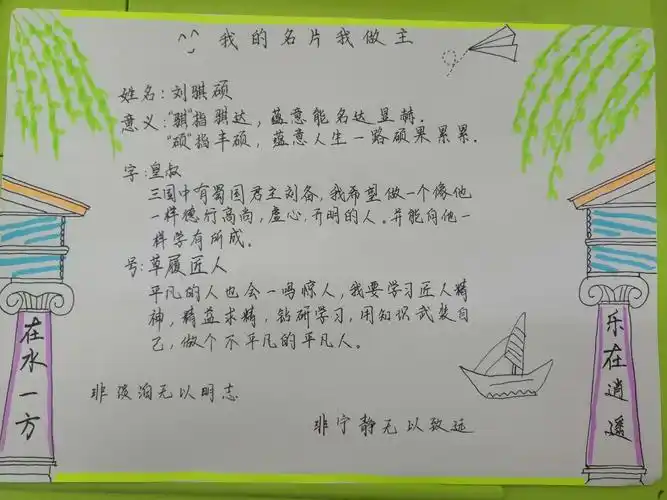 我的名片我做主
姓名:刘骐硕
意义:"骐"指骐达,蕴意能名达显赫.
"硕"指丰硕,蕴意人生一路硕果累累.
字:皇叔
三国中有蜀国君主刘备,我希望做一个像他
一样德行高尚,虚心,开明的人。并能向他一
样学有所成。
号:草履匠人
平凡的人也会一鸣惊人,我要学习匠人精
神,精益求精,钻研学习,用知识武装自
己,做个不平凡的平凡人。
非淡泊无以明志
非宁静无以致远
在水一方
乐在逍遥